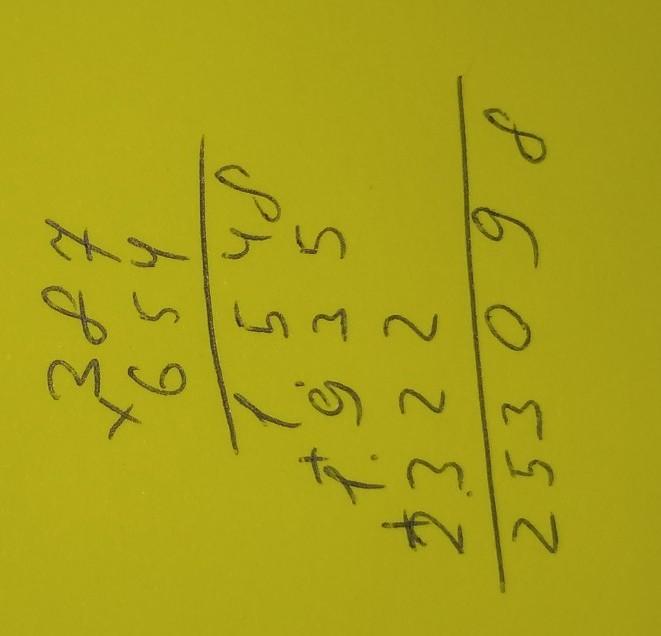 387
×654
1548
+1935
+2322
253098